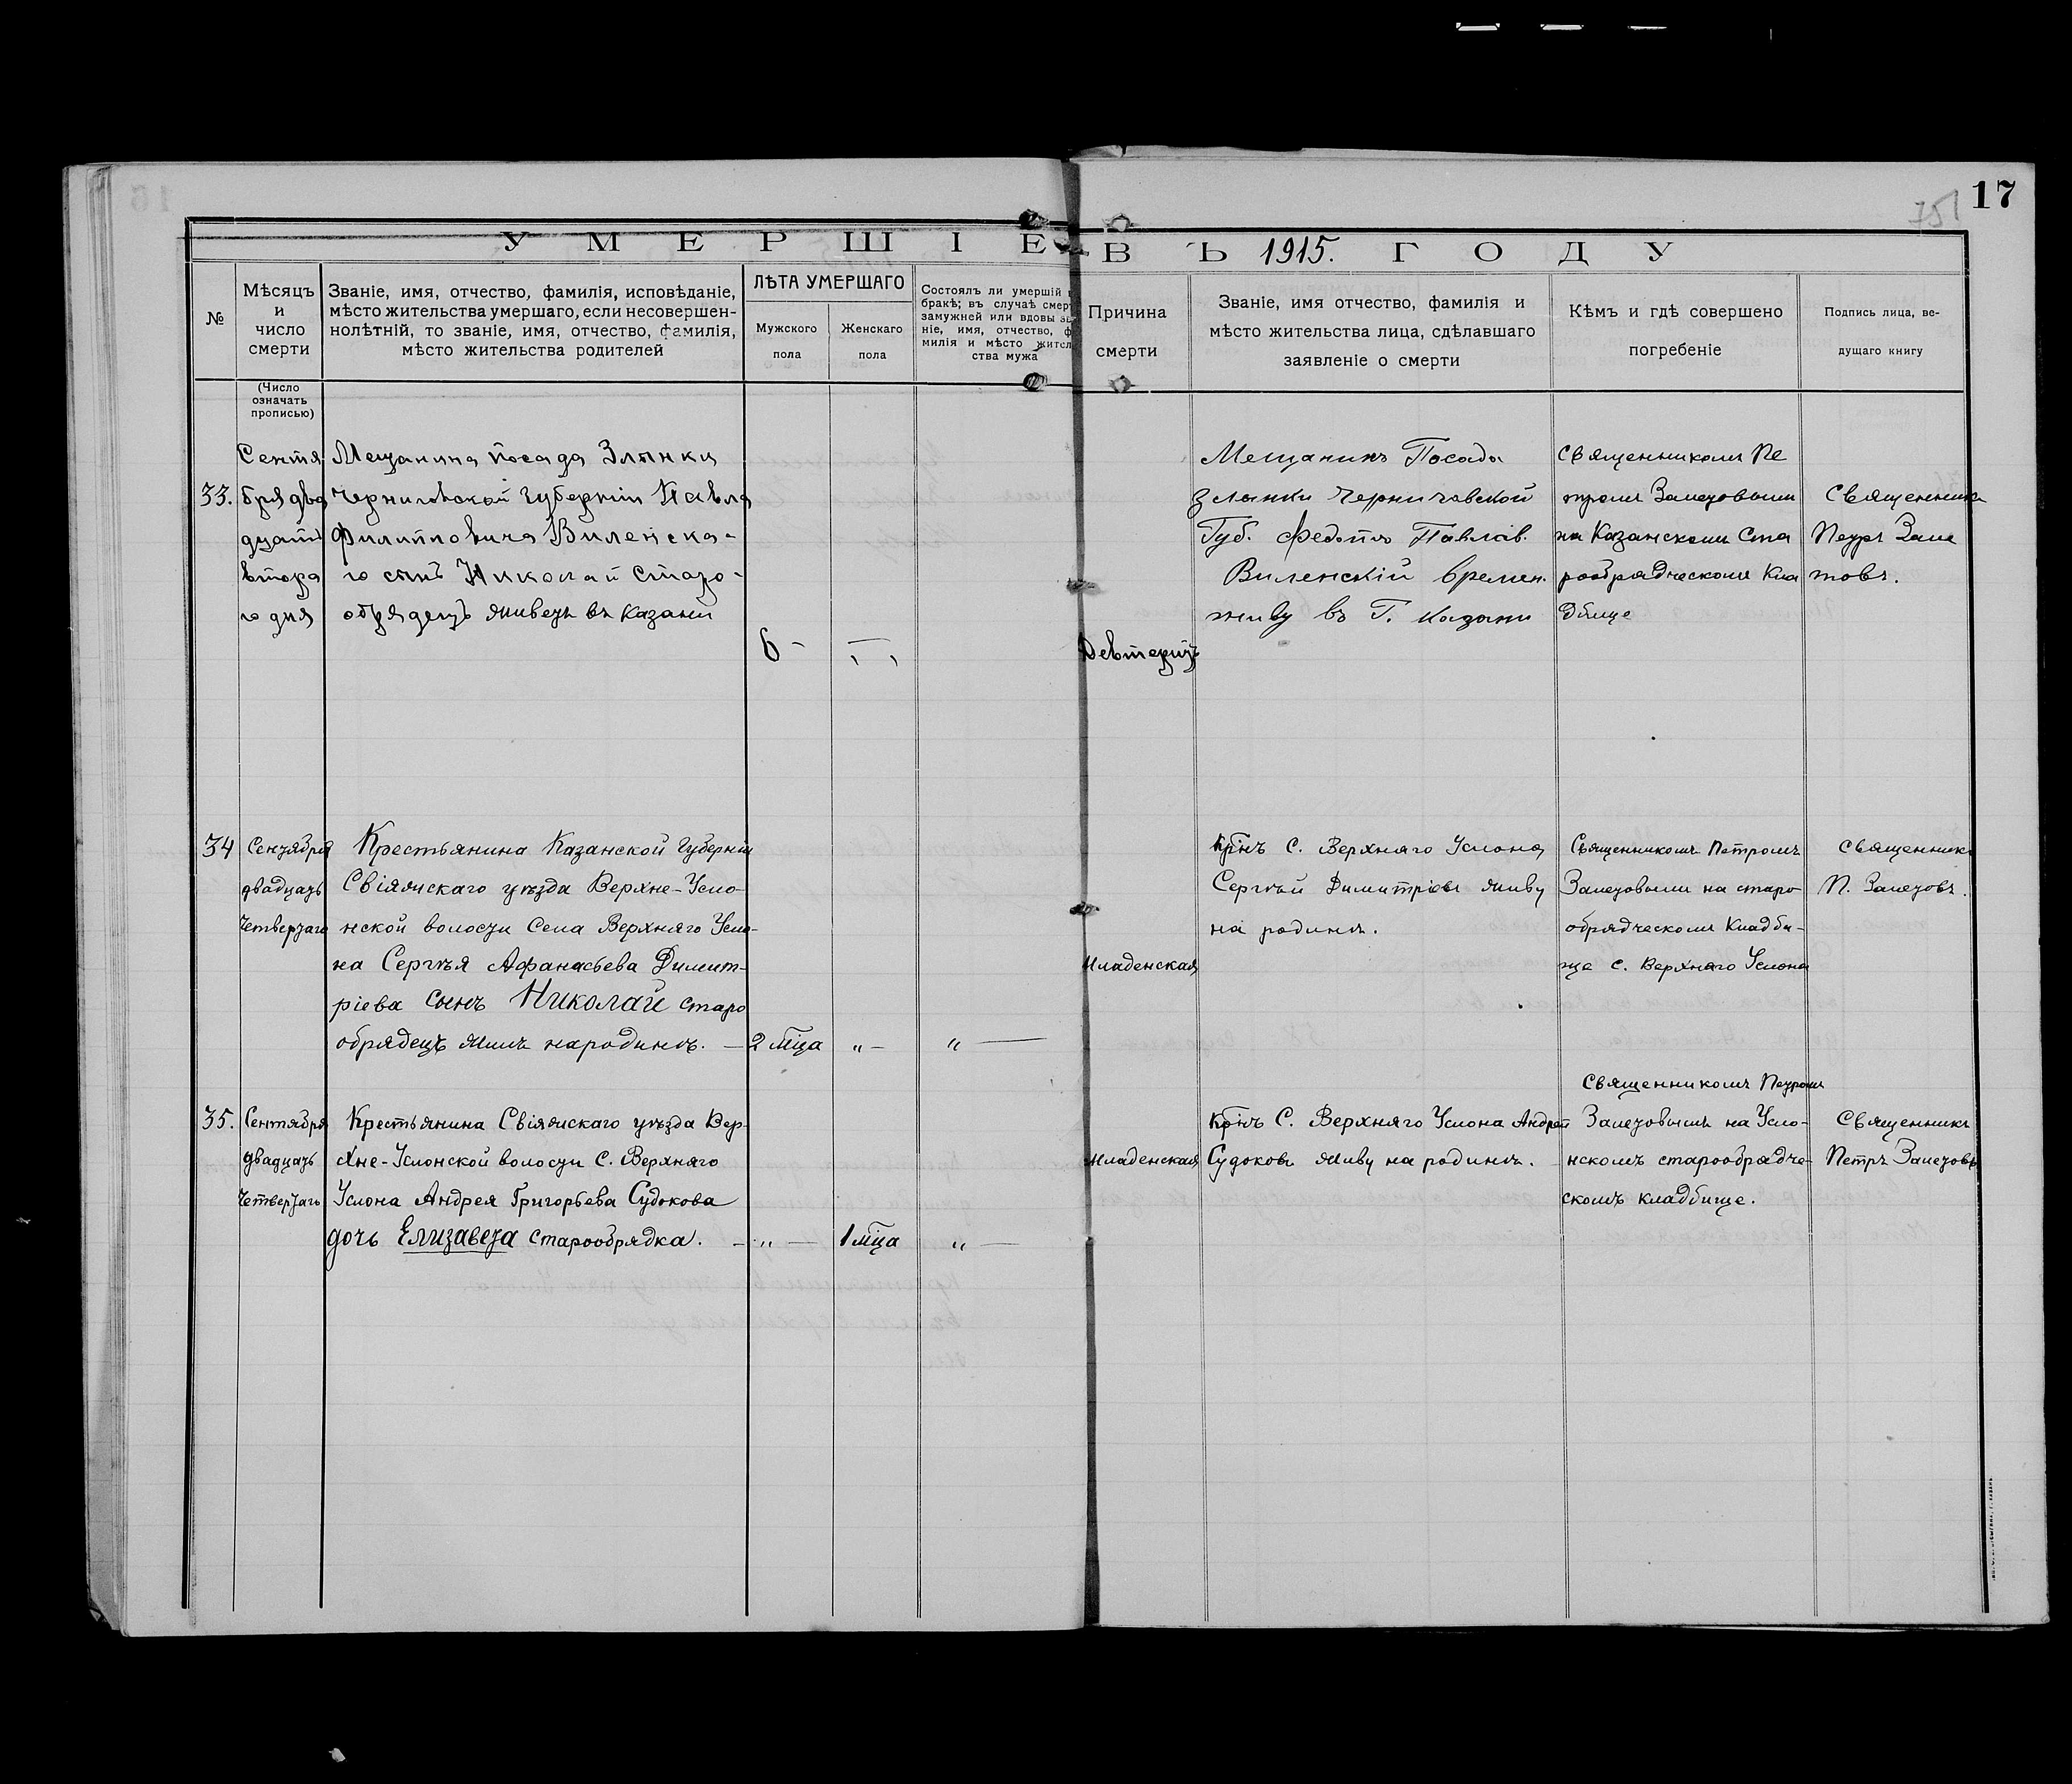 17
751
УМЕРШІЕ ВЪ 1915. ГОДУ
№
Мѣсяцъ
и
число
смерти
(Число
означать
прописью)
Званіе, имя, отчество, фамилія, исповѣданіе,
мѣсто жительства умершаго, если несовершен-
нолѣтній, то званіе, имя, отчество, фамилія,
мѣсто жительства родителей
ЛѢТА УМЕРШАГО
Мужского
пола
Женскаго
пола
Состоялъ ли умершій
бракѣ; въ случаѣ смер
замужней или вдовы
ніе, имя, отчество, ф
милія и мѣсто жител
ства мужа
Причина
смерти
Званіе, имя отчество, фамилія и
мѣсто жительства лица, сдѣлавшаго
заявленіе о смерти
Кѣмъ и гдѣ совершено
погребеніе
Подпись лица, ве-
дущаго книгу
33.
Сентя
бря два
дцать
втора
го дня
Мещанина посада Злынки
Черниговской губерніи Павла
Филипповича Виленска-
го сынъ Николай старо-
обрядецъ живетъ въ Казани
6 -
Девтеритъ
Мещанинъ Посада
Злынки Черниговской
Губ. Федотъ Павлов.
Виленскій времен.
живу въ Г. Казани
Священникомъ Пе
тромъ Залетовымъ
на Казанскомъ Ста
рообрядческомъ Кла
дбище
Священникъ
Петръ Зале
товъ.
34
Сентября
двадцать
четвертаго
Крестьянина Казанской Губерніи
Свіяжскаго уѣзда Верхне-Усло-
нской волости Села Верхняго Усло-
на Сергѣя Афанасьева Димит-
ріева сынъ Николай старо
обрядецъ жилъ народинѣ. —
2 мѣца
„ –
„ —
Младенская
Крінъ С. Верхняго Услона
Сергѣй Димитріевъ живу
на родинѣ.
Священникомъ Петромъ
Залетовымъ на старо-
обрядческомъ Кладби-
ще с. Верхняго Услона
Священникъ
П. Залетовъ.
35.
Сентября
двадцать
четвертаго
Крестьянина Свіяжскаго уѣзда Вер-
хне-Услонской волости С. Верхняго
Услона Андрея Григорьева Судокова
дочь Елизавета старообрядка.
– „ —
1 мѣца
„ —
Младенская
Крінъ С. Верхняго Услона Андрей
Судоковъ живу на родинѣ.
Священникомъ Петромъ
Залетовымъ на Усло-
нскомъ старообрядче-
скомъ кладбище.
Священникъ
Петръ Залетовъ